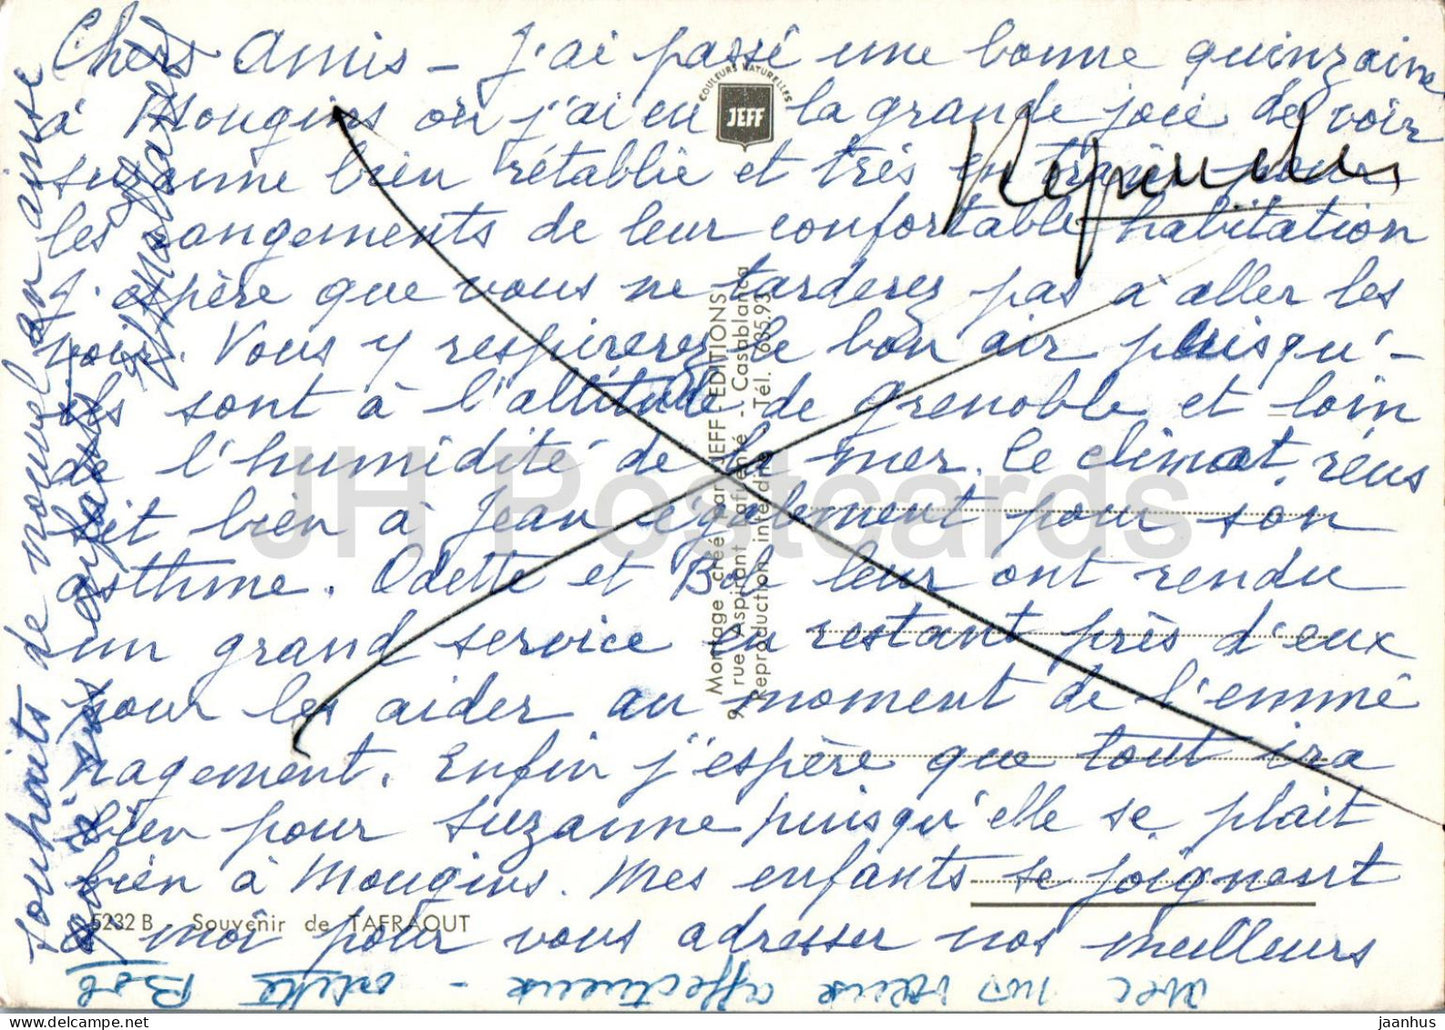 Chers Amis - J'ai passé une bonne quinzaine
à Mougins où j'ai eu la grande joie de voir
Suzanne bien rétablie et très en train pour
les rangements de leur confortable habitation
J'espère que vous ne tarderez pas à aller les
voir. Vous y respirerez le bon air puisqu'-
ils sont à l'altitude de Grenoble et loin
de l'humidité de la mer. Ce climat réus
sit bien à Jean également pour son
asthme. Odette et Bob leur ont rendu
un grand service en restant près d'eux
pour les aider au moment de l'emmé
nagement. Enfin j'espère que tout ira
bien pour Suzanne puisqu'elle se plait
bien à Mougins. Mes enfants se joignent
à moi pour vous adresser nos meilleurs
souhaits de nouvel an ainsi
avec nos affectueux - Odette Bob
Répondu
COULEURS NATURELLES
JEFF
Montage créé par JEFF - EDITIONS
9, rue Aspirant Lafuenté - Casablanca
Reproduction interdite - Tél. 635.93
5232 B Souvenir de TAFRAOUT
JH Postcards
https://www.jaanhus.com
jaanhus